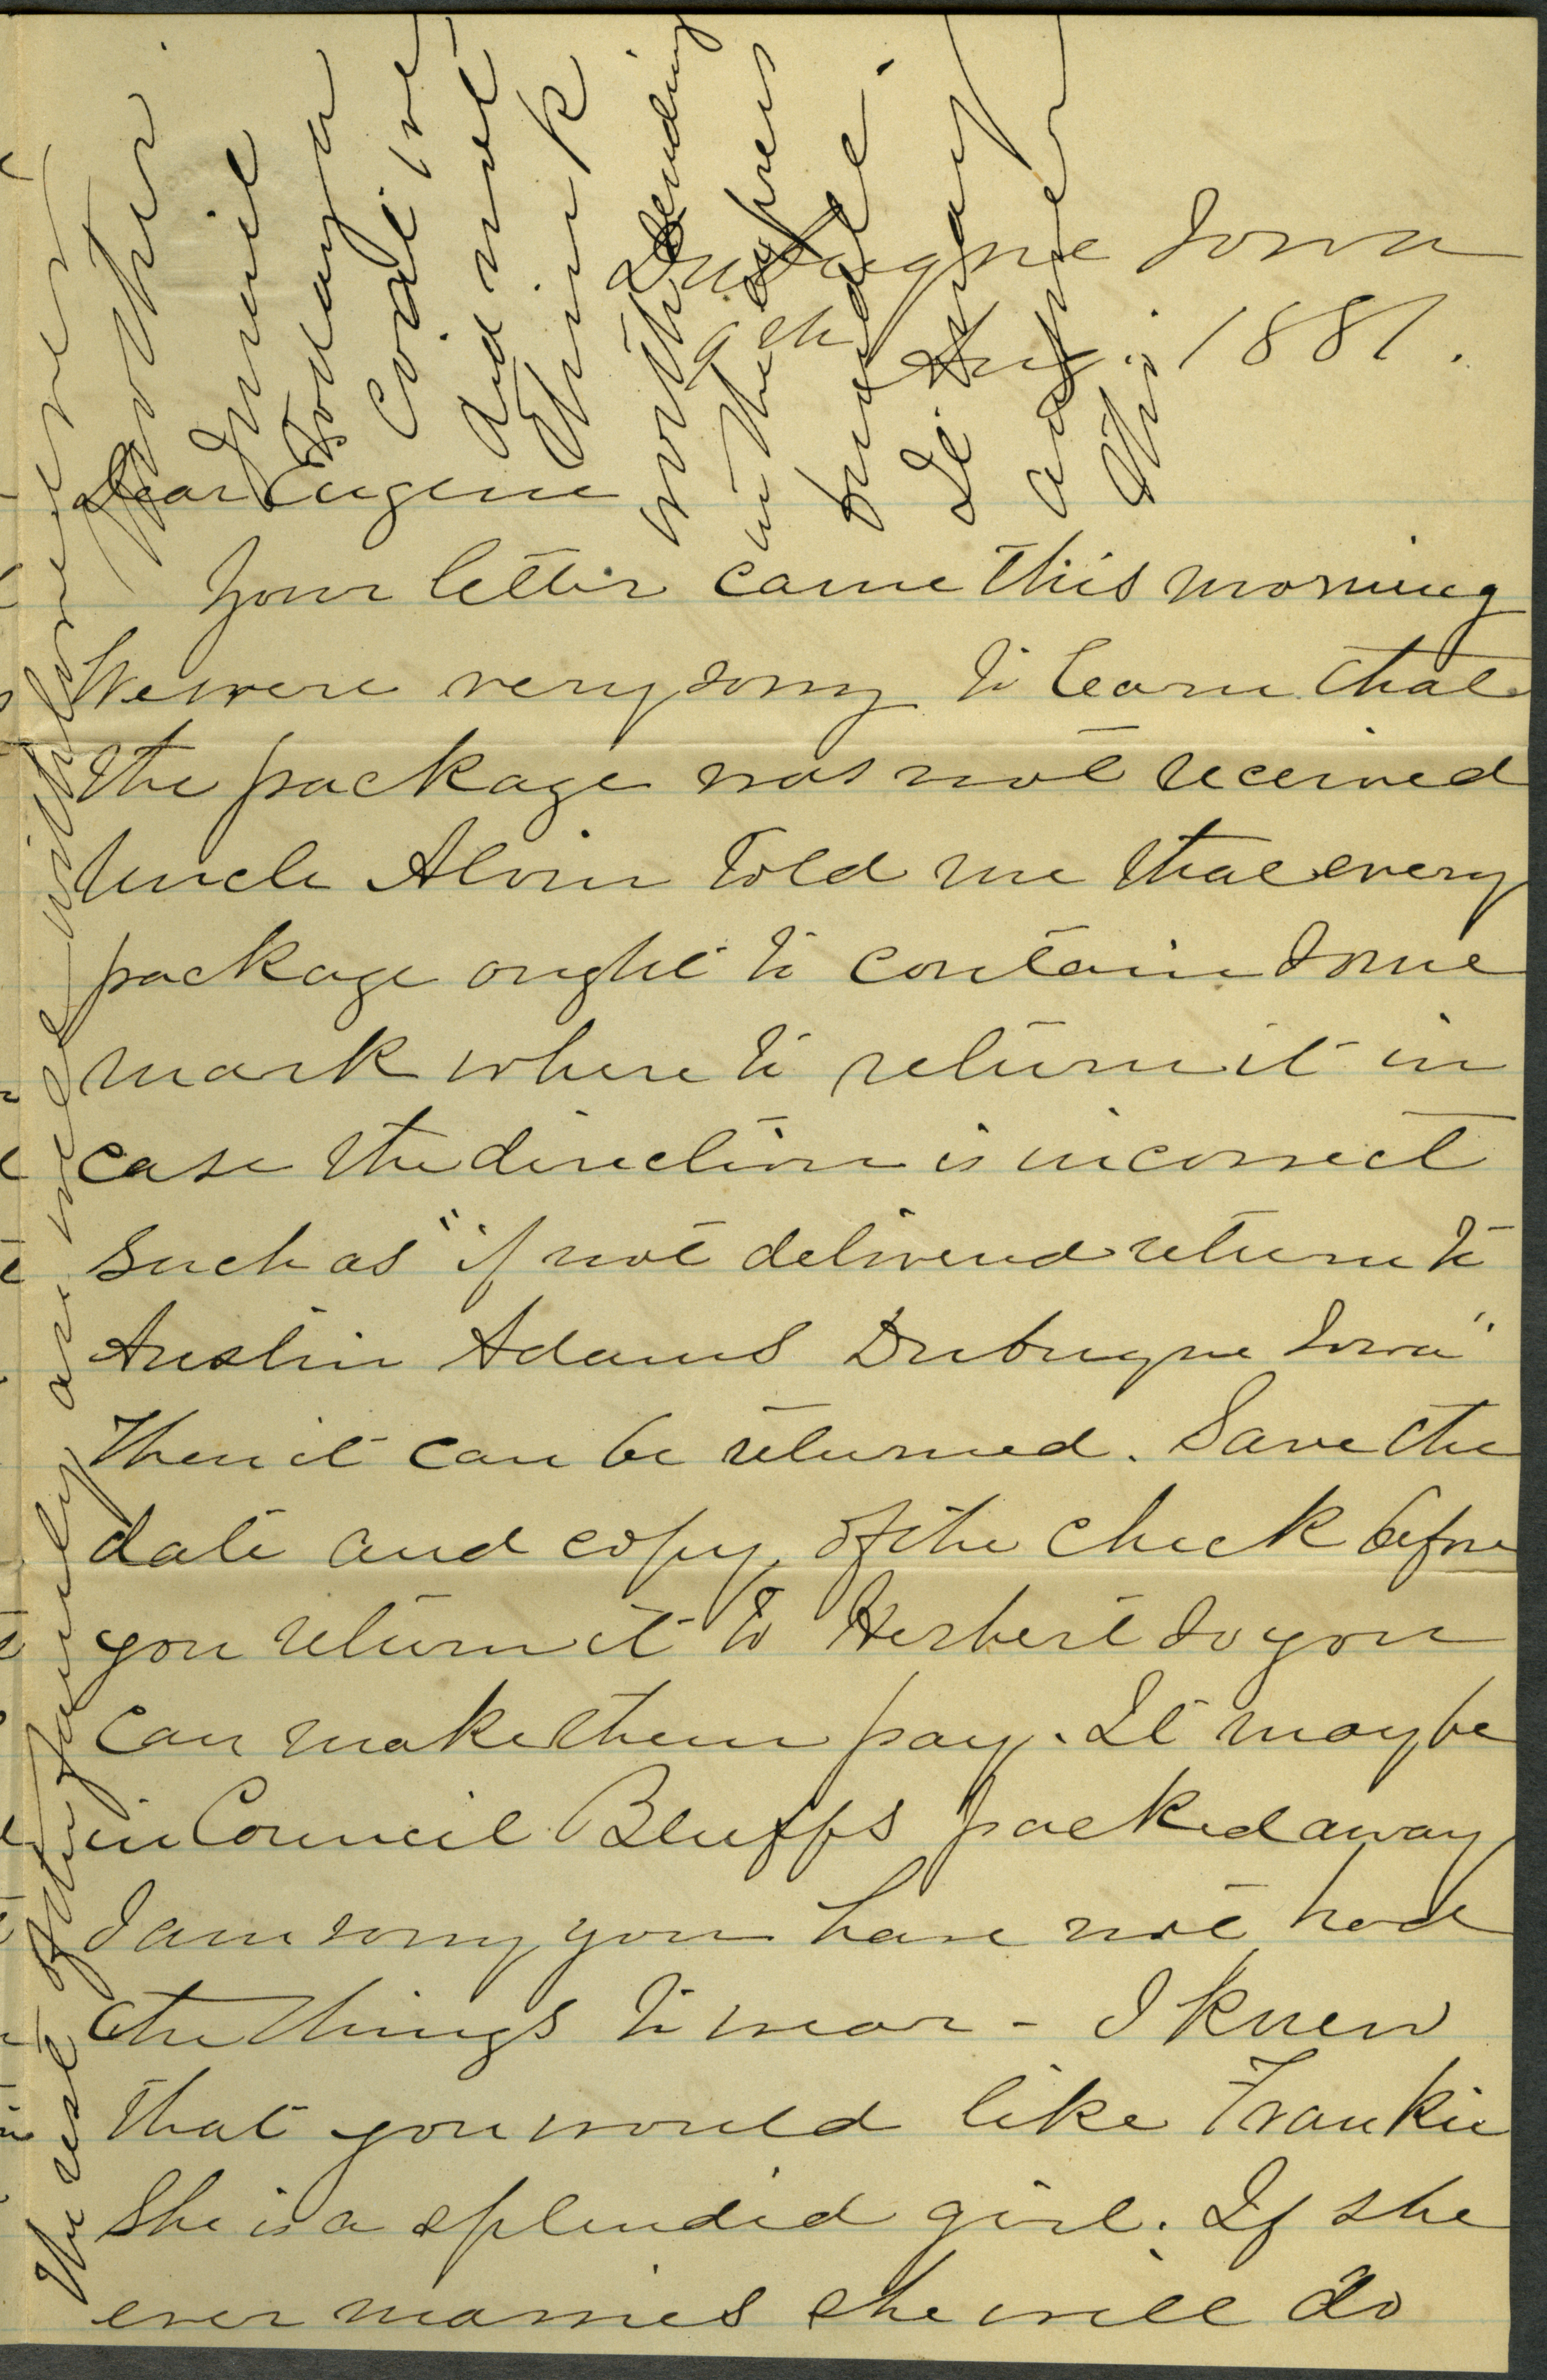 Dubuque Iowa
9th Aug. 1881.
Dear Eugene
Your letter came this morning
We were very sorry to learn that
the package was not received
Uncle Alvin told me that every
package ought to contain some
mark where to return it in
case the direction is incorrect
such as "if not delivered return to
Austin Adams Dubuque Iowa"
Then it can be returned. Save the
date and copy of the check before
you return it to Herbert so you
can make them pay. It may be
in Council Bluffs packed away
I am sorry you have not had
the things to wear - I knew
that you would like Frankie
She is a splendid girl. If she
ever marries she will do
The rest of the family are well with love ever
Mother
I mail
today a
coat we
did not
think
worth sending
in the express
bundle.
It may
answer
this